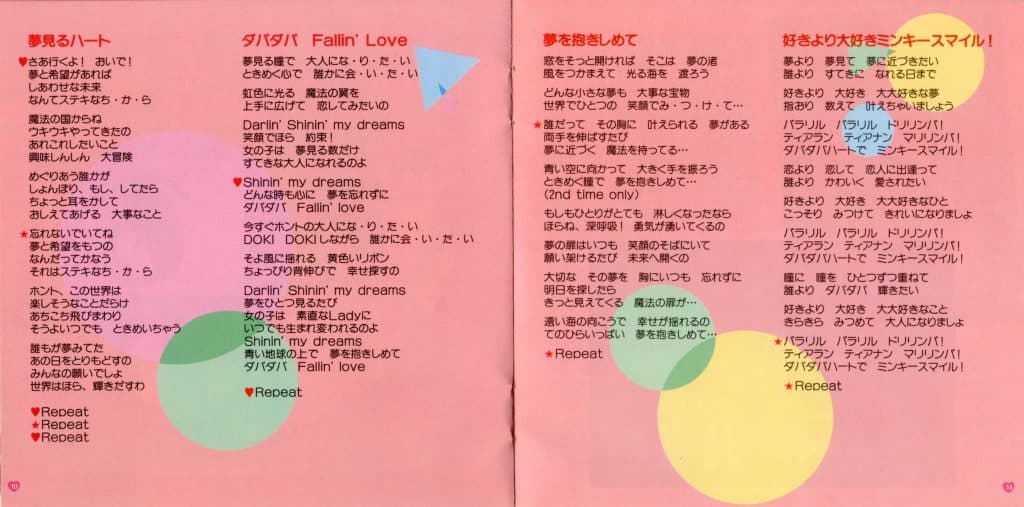 夢見るハート
♥さあ行くよ! おいで!
夢と希望があれば
しあわせな未来
なんてステキなち・か・ら
魔法の国からね
ウキウキやってきたの
あれこれしたいこと
興味しんしん 大冒険
めぐりあう誰かが
しょんぼり、もし、してたら
ちょっと耳をかして
おしえてあげる 大事なこと
★忘れないでいてね
夢と希望をもつの
なんだってかなう
それはステキなち・か・ら
ホント、この世界は
楽しそうなことだらけ
あちこち飛びまわり
そうよいつでも ときめいちゃう
誰もが夢みてた
あの日をとりもどすの
みんなの願いでしょ
世界はほら、輝きだすわ
♥Repeat
★Repeat
♥Repeat
ダバダバ Fallin' Love
夢見る瞳で 大人にな・り・た・い
ときめく心で 誰かに会・い・た・い
虹色に光る 魔法の翼を
上手に広げて 恋してみたいの
Darlin' Shinin' my dreams
笑顔でほら 約束!
女の子は 夢見る数だけ
すてきな大人になれるのよ
♥Shinin' my dreams
どんな時も心に 夢を忘れずに
ダバダバ Fallin' love
今すぐホントの大人にな・り・た・い
DOKI DOKIしながら 誰かに会・い・た・い
そよ風に揺れる 黄色いリボン
ちょっぴり背伸びで 幸せ探すの
Darlin' Shinin' my dreams
夢をひとつ見るたび
女の子は 素直なLadyに
いつでも生まれ変われるのよ
Shinin' my dreams
青い地球の上で 夢を抱きしめて
ダバダバ Fallin' love
♥Repeat
夢を抱きしめて
窓をそっと開ければ そこは 夢の渚
風をつかまえて 光る海を 渡ろう
どんな小さな夢も 大事な宝物
世界でひとつの 笑顔でみ・つ・け・て…
★誰だって その胸に 叶えられる 夢がある
両手を伸ばすたび
夢に近づく 魔法を持ってる…
青い空に向かって 大きく手を振ろう
ときめく瞳で 夢を抱きしめて…
(2nd time only)
もしもひとりがとても 淋しくなったなら
ほらね、深呼吸! 勇気が湧いてくるの
夢の扉はいつも 笑顔のそばにいて
願い架けるたび 未来へ開くの
大切な その夢を 胸にいつも 忘れずに
明日を探したら
きっと見えてくる 魔法の扉が…
遠い海の向こうで 幸せが揺れるの
てのひらいっぱい 夢を抱きしめて…
★Repeat
好きより大好きミンキースマイル!
夢より 夢見て 夢に近づきたい
誰より すてきに なれる日まで
好きより 大好き 大大好きな夢
指おり 数えて 叶えちゃいましょう
パラリル パラリル ドリリンパ!
ティアラン ティアナン マリリンパ!
ダバダバハートで ミンキースマイル!
恋より 恋して 恋人に出逢って
誰より かわいく 愛されたい
好きより 大好き 大大好きなひと
こっそり みつけて きれいになりましょ
パラリル パラリル ドリリンパ!
ティアラン ティアナン マリリンパ!
ダバダバハートで ミンキースマイル!
瞳に 瞳を ひとつずつ重ねて
誰より ダバダバ 輝きたい
好きより 大好き 大大好きなこと
きらきら みつめて 大人になりましょ
★パラリル パラリル ドリリンパ!
ティアラン ティアナン マリリンパ!
ダバダバハートで ミンキースマイル!
★Repeat
10
11